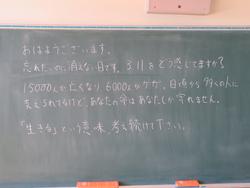 おはようございます。
忘れたいのに消えない日です。3.11をどう感じてますか?
15000人が亡くなり6000人がケガ。日頃から多くの人に
支えられてるけど、あなたの命はあなたしか守れません。
「生きる」という意味、考え続けて下さい。